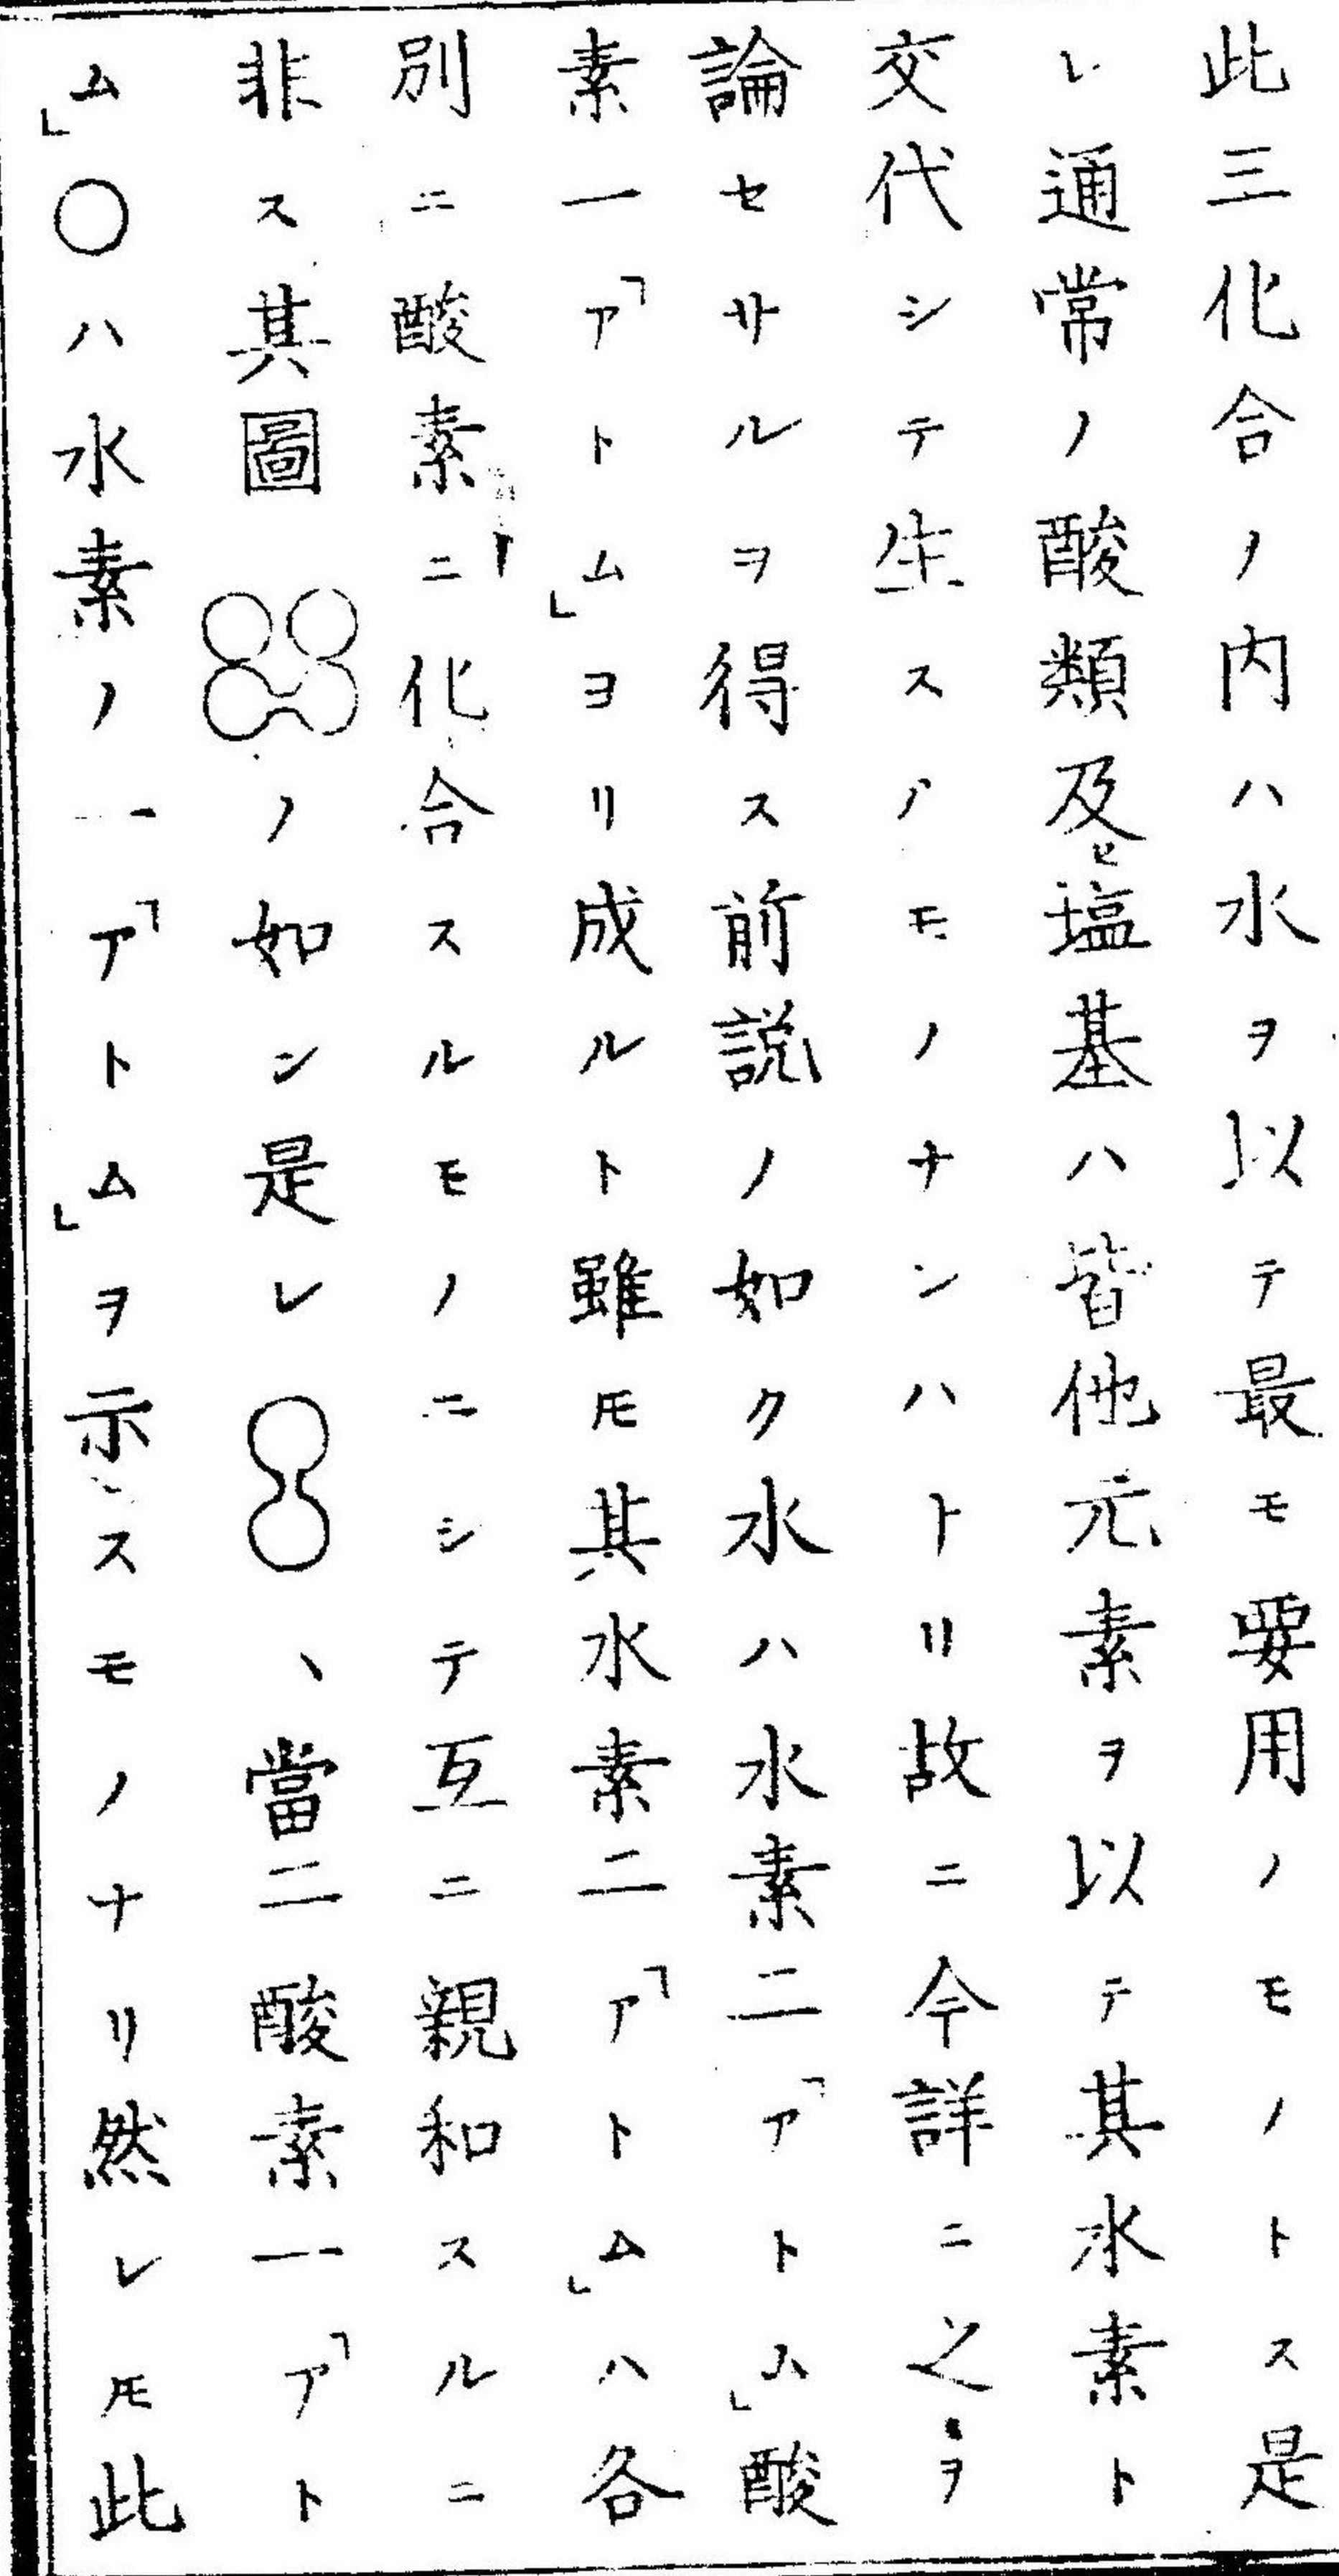 此三化合ノ内ハ水ヲ以テ最モ要用ノモノトス是
レ通常ノ酸類及ヒ塩基ハ皆他元素ヲ以テ其水素ト
交代シテ生スノモノナンハトリ故ニ今詳ニ之ヲ
論セサルヲ得ス前説ノ如ク水ハ水素二「アトム」酸
素一「アトム」ヨリ成ルト雖𪜈其水素二「アトム」ハ各
別ニ酸素ニ化合スルモノニシテ互ニ親和スルニ
非ス其圖ノ如シ是レ、當二酸素一「アト
ム」〇ハ水素ノ一「アトム」ヲ示スモノナリ然レ𪜈此